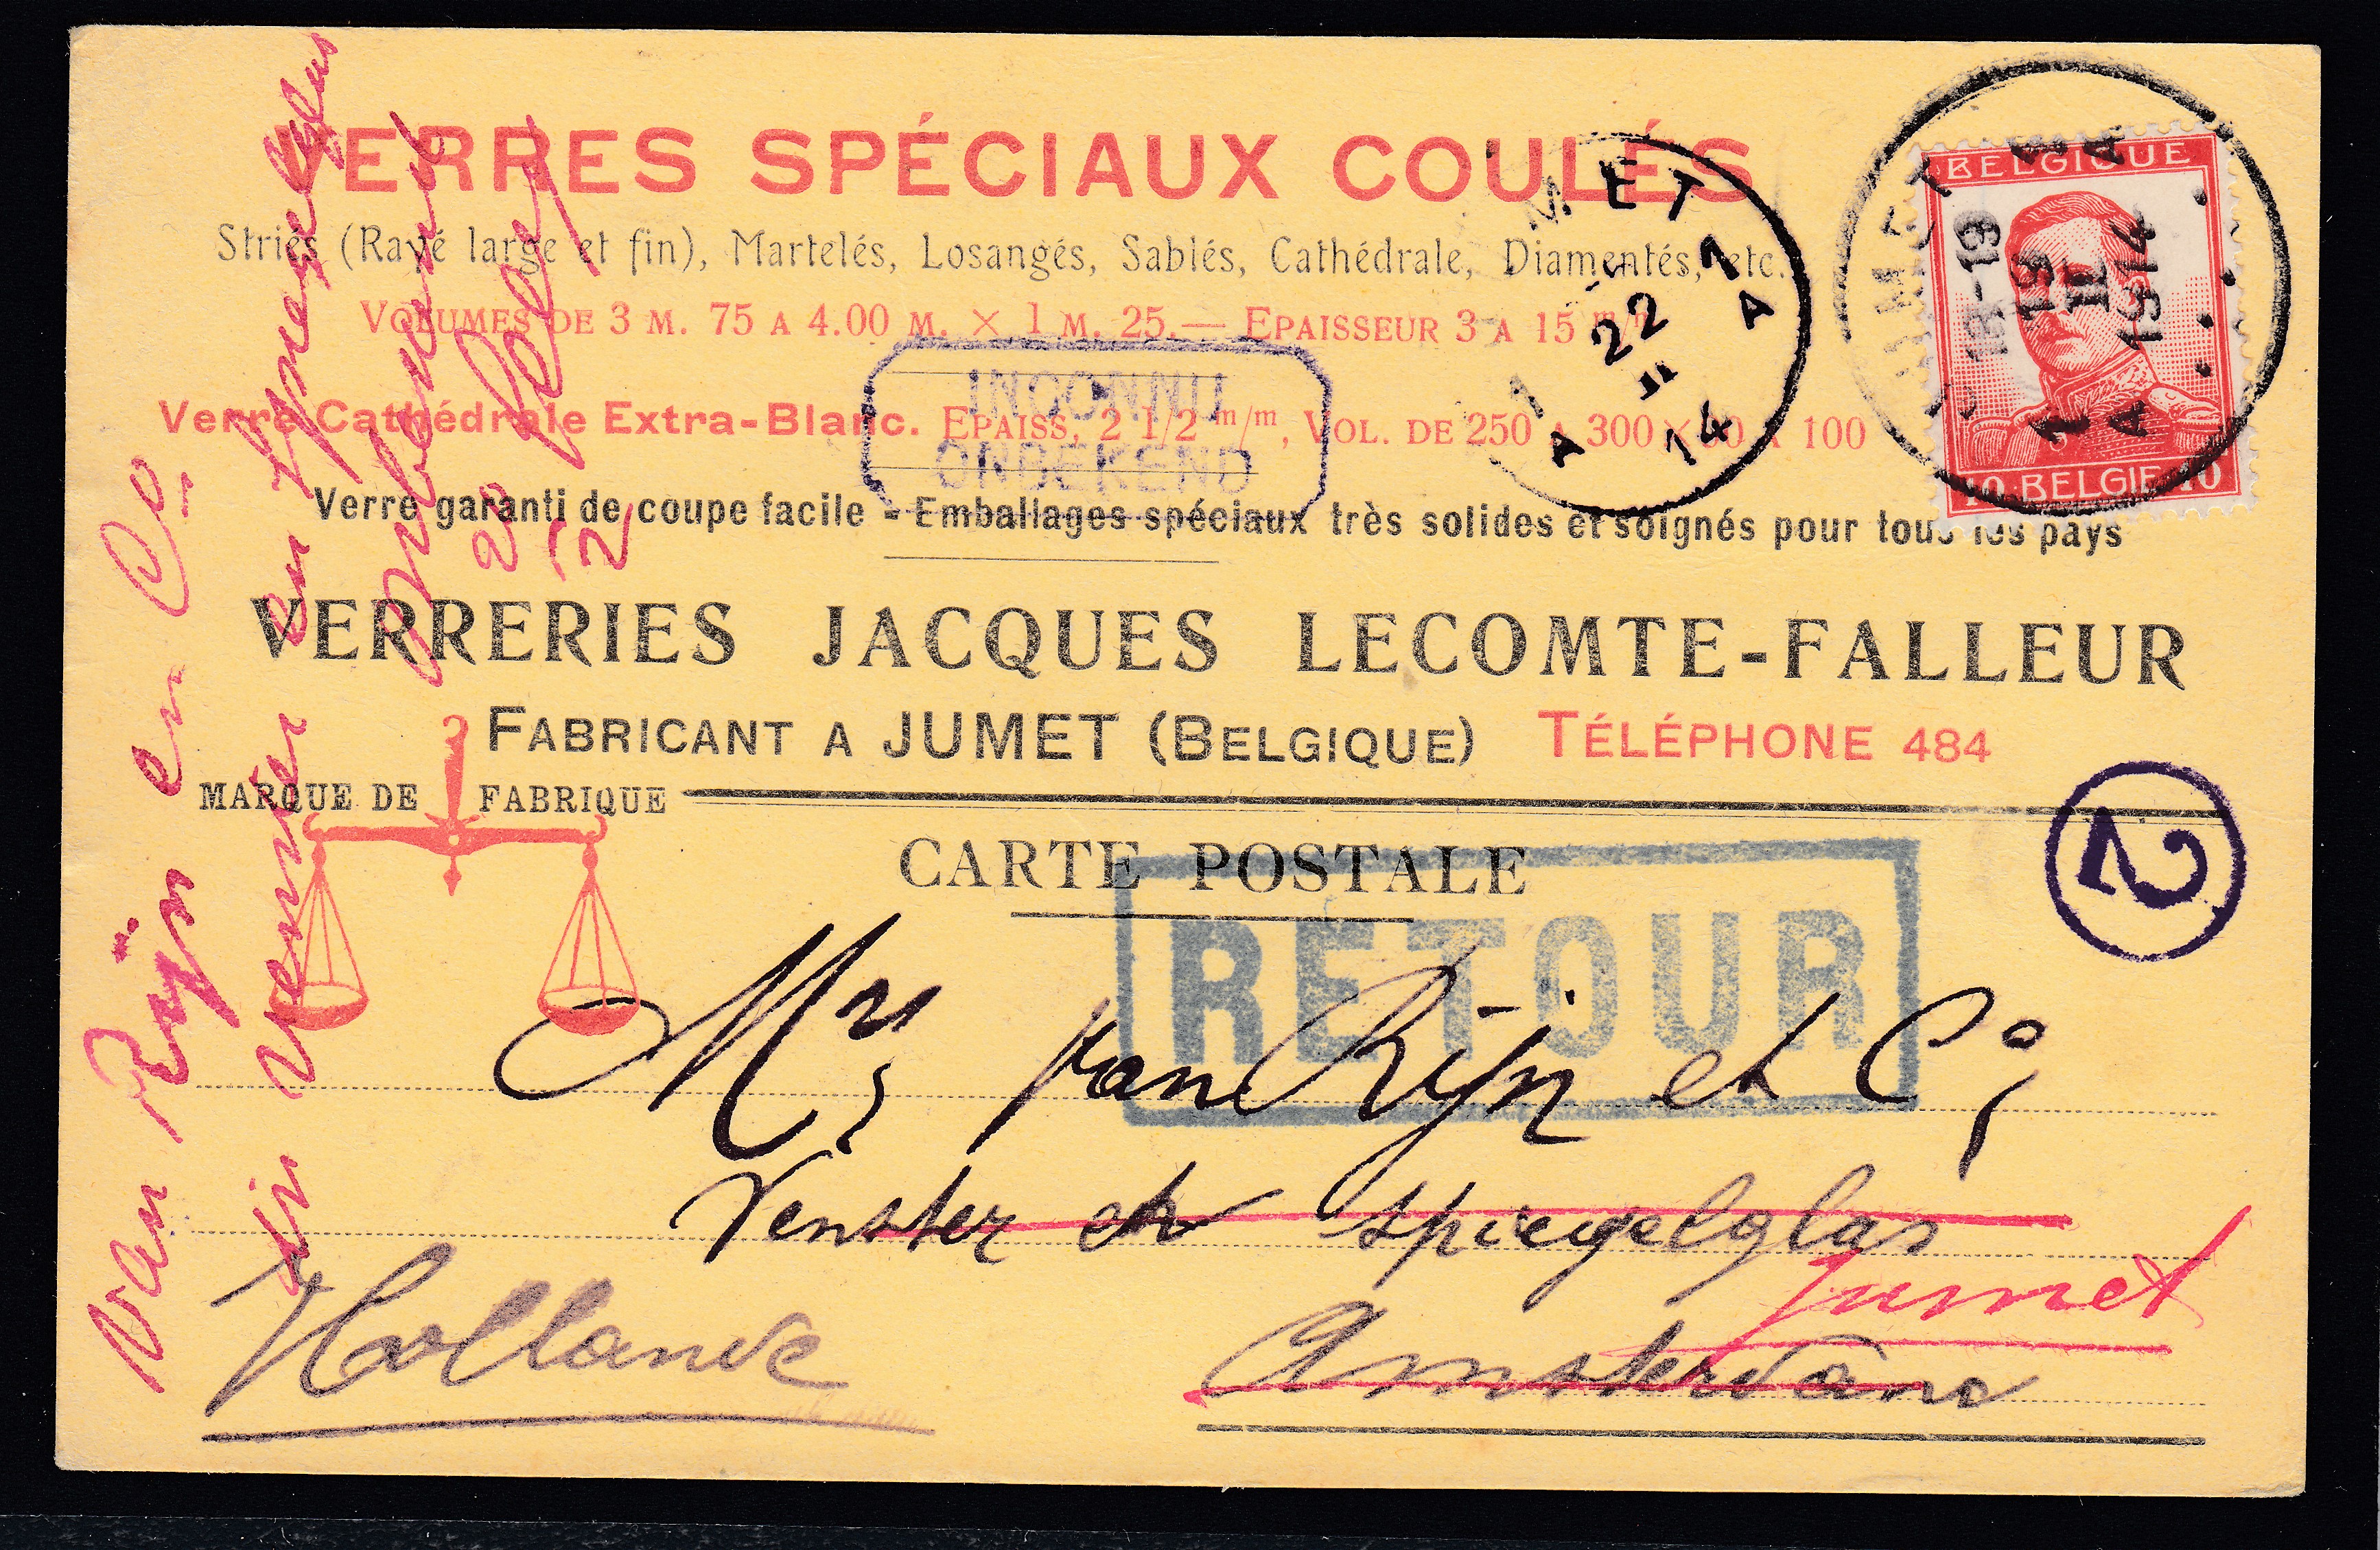 VERRES SPÉCIAUX COULÉS
Striés (Rayé large et fin), Martelés, Losangés, Sablés, Cathédrale, Diamentés, etc.
VOLUMES DE 3 M. 75 A 4.00 M. × 1 M. 25.— EPAISSEUR 3 A 15 m/m
Verre Cathédrale Extra-Blanc. EPAISS, 2 1/2 m/m, VOL. DE 250 A 300 × 90 A 100
Verre garanti de coupe facile - Emballages spéciaux très solides et soignés pour tous les pays
VERRERIES JACQUES LECOMTE-FALLEUR
FABRICANT A JUMET (BELGIQUE) TÉLÉPHONE 484
MARQUE DE FABRIQUE
CARTE POSTALE
Mrs van Rijn et Co,
Venster en spiegelglas
Jumet
Amsterdam
Hollande
BELGIQUE
10 BELGIE 10
JUMET 1
18-19
19
II
1914
1 A
MET 1
A
22
II
14
1 A
INCONNU
ONBEKEND
RETOUR
2
van Rijn en Co
in venster en spiegelglas
onbekend
20/2